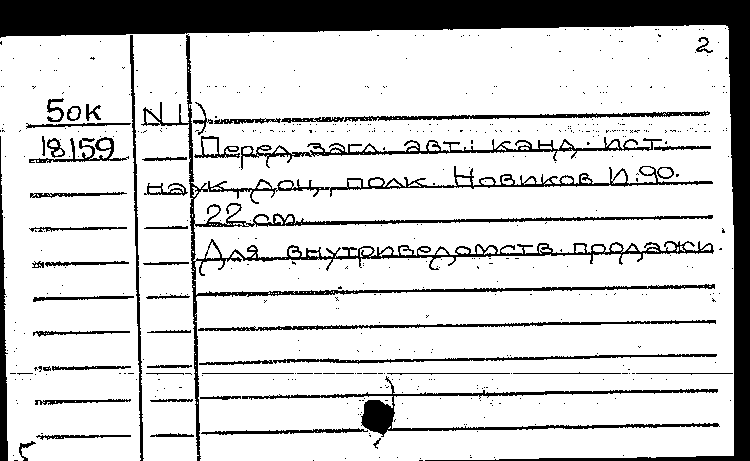 2
50к N 1).
18159 Перед загл. авт.: канд. ист.
наук, доц., полк. Новиков И.Ф.
22 см.
Для внутриведомств. продажи.